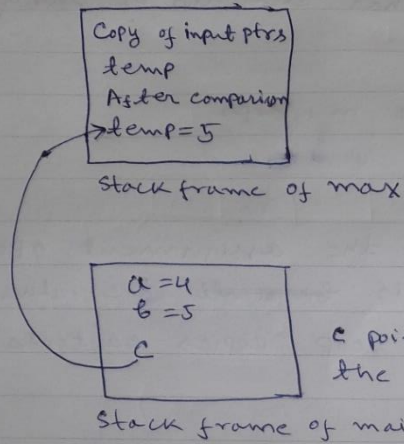 Copy of input ptrs
temp
After comparion
temp = 5
Stack frame of max
a = 4
b = 5
C
c poi
the
Stack frame of mai